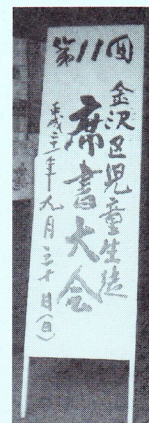 第11回
金沢区児童生徒
席書大会
平成二十一年九月二十日(日)